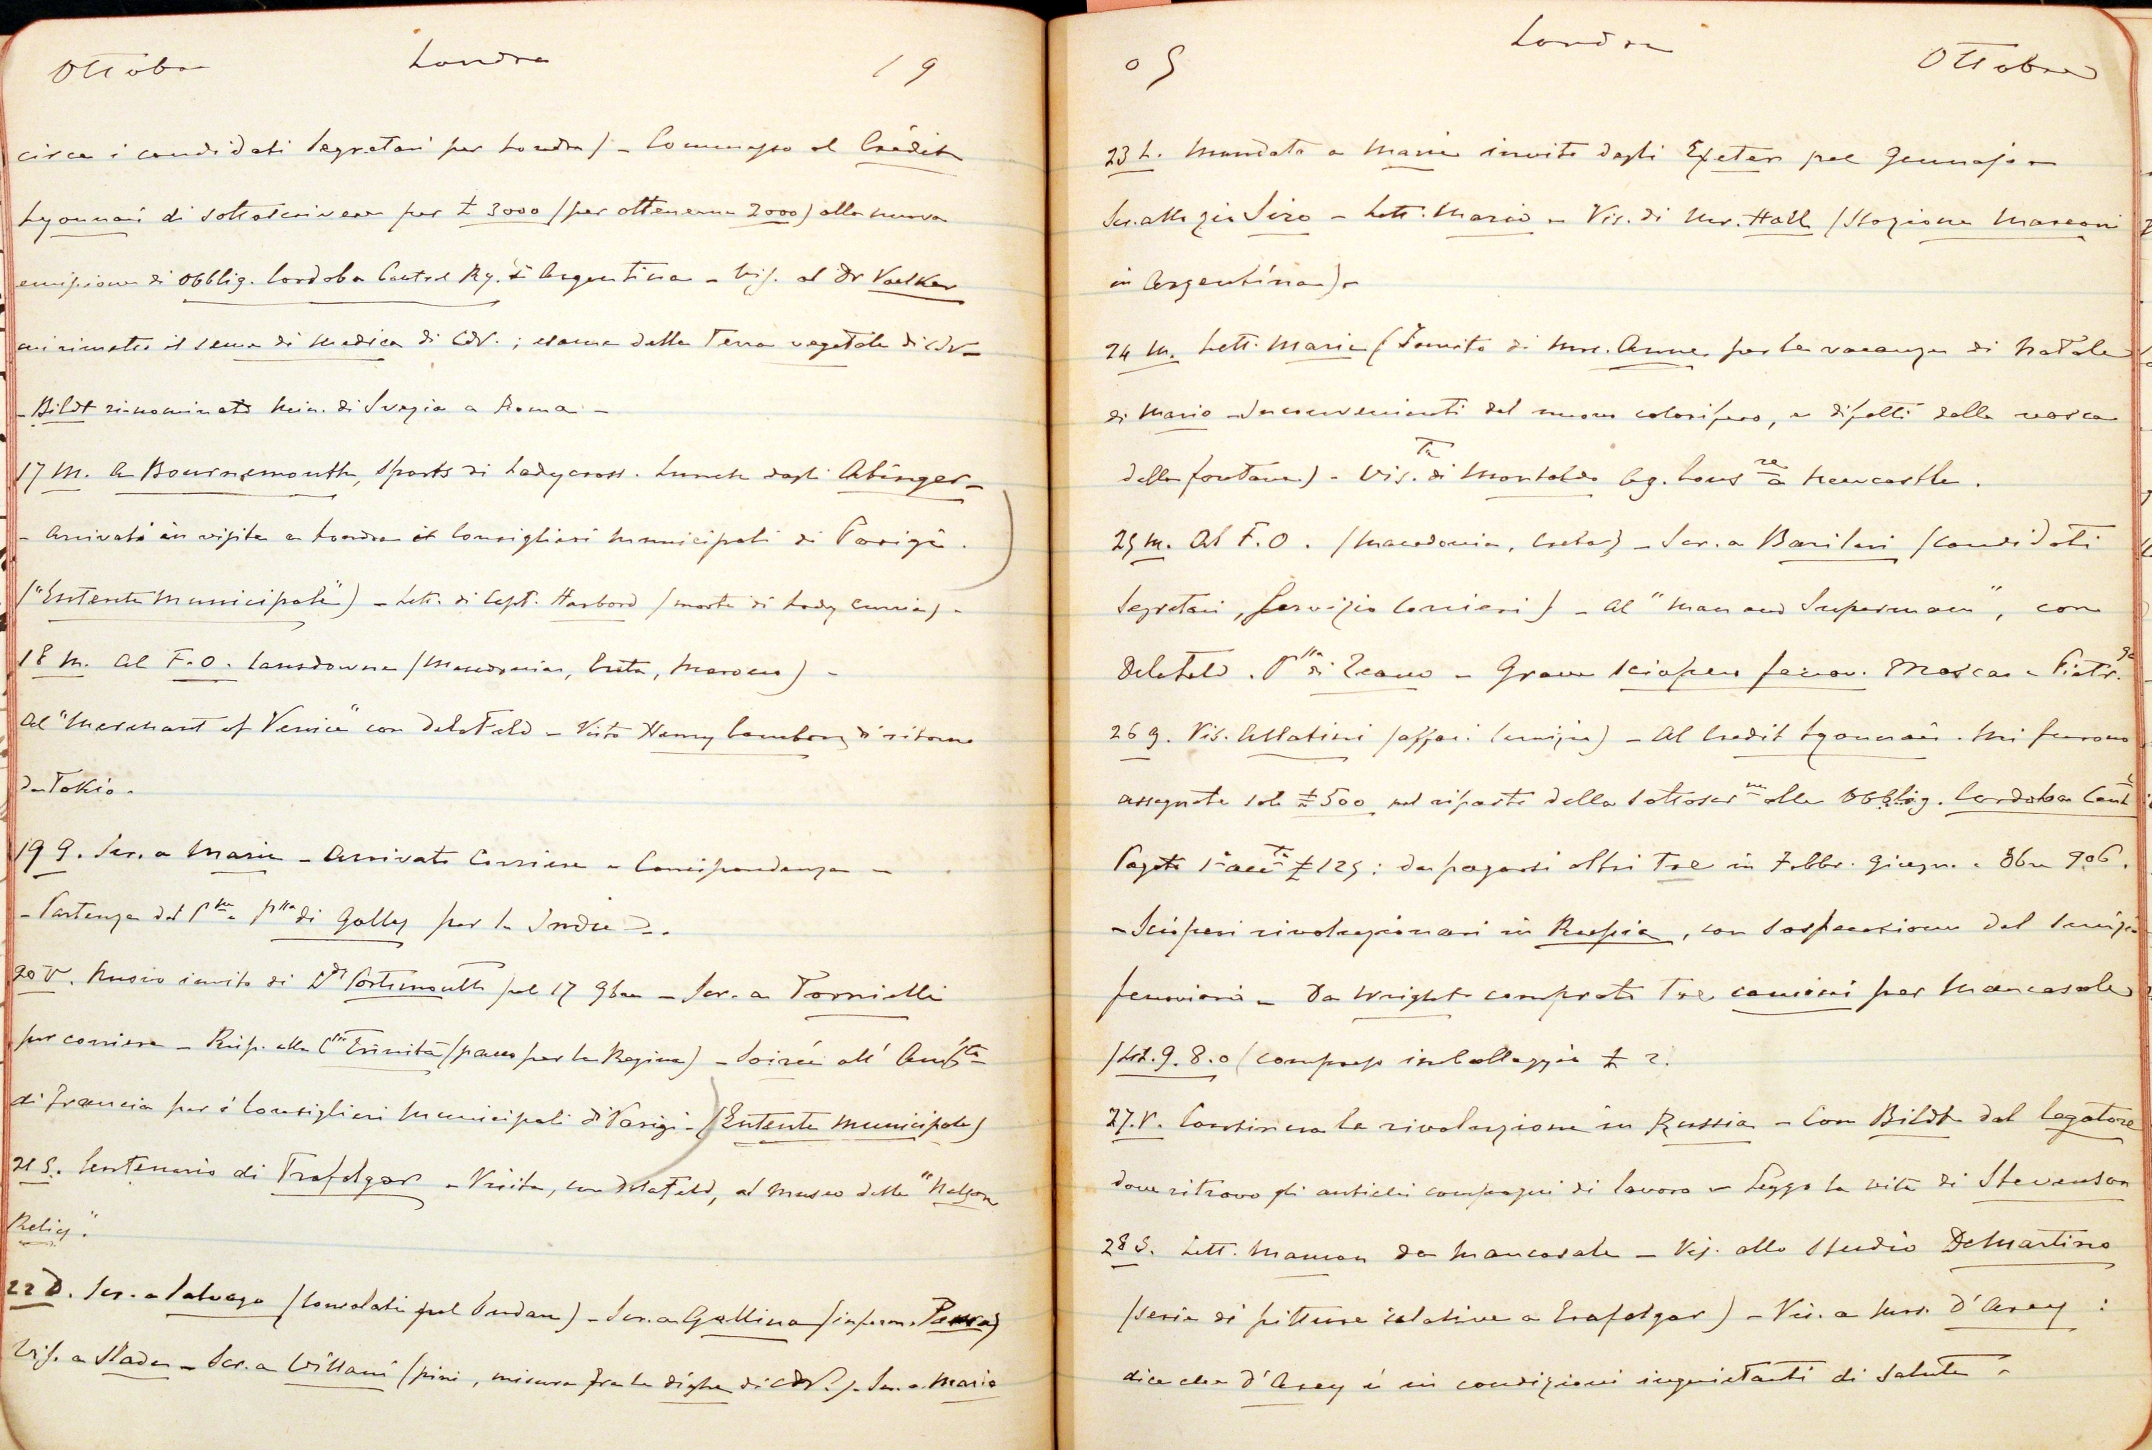 Ottobre Londra 19
circa i candidati Segretari per Londra) - Commesso al Crédit
Lyonnais di sottoscrivere per £ 3000 (per ottenerne 2000) alla nuova
emissione di obblig. Cordoba Central Ry. di Argentina - Vis. al Dr Voelker
mi rimette il seme di medica di CdV.; esame della terra vegetale di CdV -
- Bildt rinominato Min. di Svezia a Roma -
17 M. A Bournemouth, sports di Ladycross. Lunch dagli Abinger -
- Arrivati in visita a Londra i Consiglieri Municipali di Parigi.
("Entente Municipale") - Lett. di Capt. Harbord (morte di Lady Currie) -
18 M. Al F.O. Lansdowne (Macedonia, Creta, Marocco) -
Al "Merchant of Venice" con Delafeld - Visto Henny di ritorno
da Tokio.
19 G. Scr. a Maria - Arrivato Corriere - Corrispondenza -
- Partenza del Pre e Pssa di Galles per le Indie -.
20 V. Nuovo invito di Ldy Portsmouth pel 17 9bre - Scr. a Tornielli
per corriere - Risp. alla Cssa Trinità (pacco per la Regina) - Soirée all' Ambta
di Francia per i Consiglieri Municipali di Parigi - (Entente Municipale)
21 S. Centenario di Trafalgar - Visita, con Delafeld, al Museo delle "Nelson
Relics".
22 D. Scr. a Salvago (Consolati pel Sudan) - Scr. a Gallina (inform.
Vis. a Slade - Scr. a Villani (pini, misura fra le dighe di CdV.) - Scr. a Mario
05 Londra Ottobre
23 L. Mandata a Maria invito dagli Exeter pel Gennajo -
Scr. alla zia Siro - Lett. Mario - Vis. di Mr. Hall (Stazione Marconi
in Argentina) -
24 M. Lett. Maria (Invito di Mrs. Anne per le vacanze di Natale
di Mario - Inconvenienti del nuovo calorifero, e difetti della vasca
della fontana) - Vis. di Montaldo Ag. Cons.re a Newcastle.
25 M. Al F.O. (Macedonia, Creta) - Scr. a Barilari (candidati
Segretari, Servizio Corrieri) - Al "Man and Superman", con
Delafeld. Pssa di Teano - Grave sciopero ferrov. Mosca - Pietr.go
26 G. Vis. Allatini (affari) - Al Credit Lyonnais. Mi furono
assegnate sole £ 500 nel riparto della sottoscr.ne alle Obblig. Cordoba Centl
Pagate £ 125: da pagarsi altri tre in Febbr. Giugn. e 8bre 906.
- Scioperi rivoluzionari in Russia, con sospensione del servizio
ferroviario - Da Wright comprati tre camini per Mancasale
(Lst. 9.8.0 (compreso imballaggio £ 2.
27. V. Continua la rivoluzione in Russia - Con Bildt dal legatore
dove ritrovo gli antichi compagni di lavoro - Leggo la vita di Stevenson
28 S. Lett. Maman da Mancasale - Vis. allo studio DeMartino
(serie di pitture relative a Trafalgar) - Vis. a Mrs. D'Arcy :
dice che D'Arcy è in condizioni inquietanti di salute -